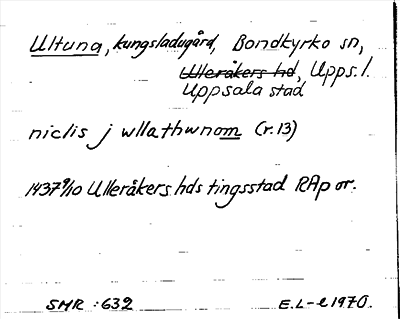 Ultuna, kungsladugård, Bondkyrko sn,
Ulleråkers hd, Upps. l.
Uppsala stad
niclis j wllathwnom (r. 13)
1437 9/10 Ulleråkers hds tingsstad RAp or.
SMR : 632 E.L-e 1970.